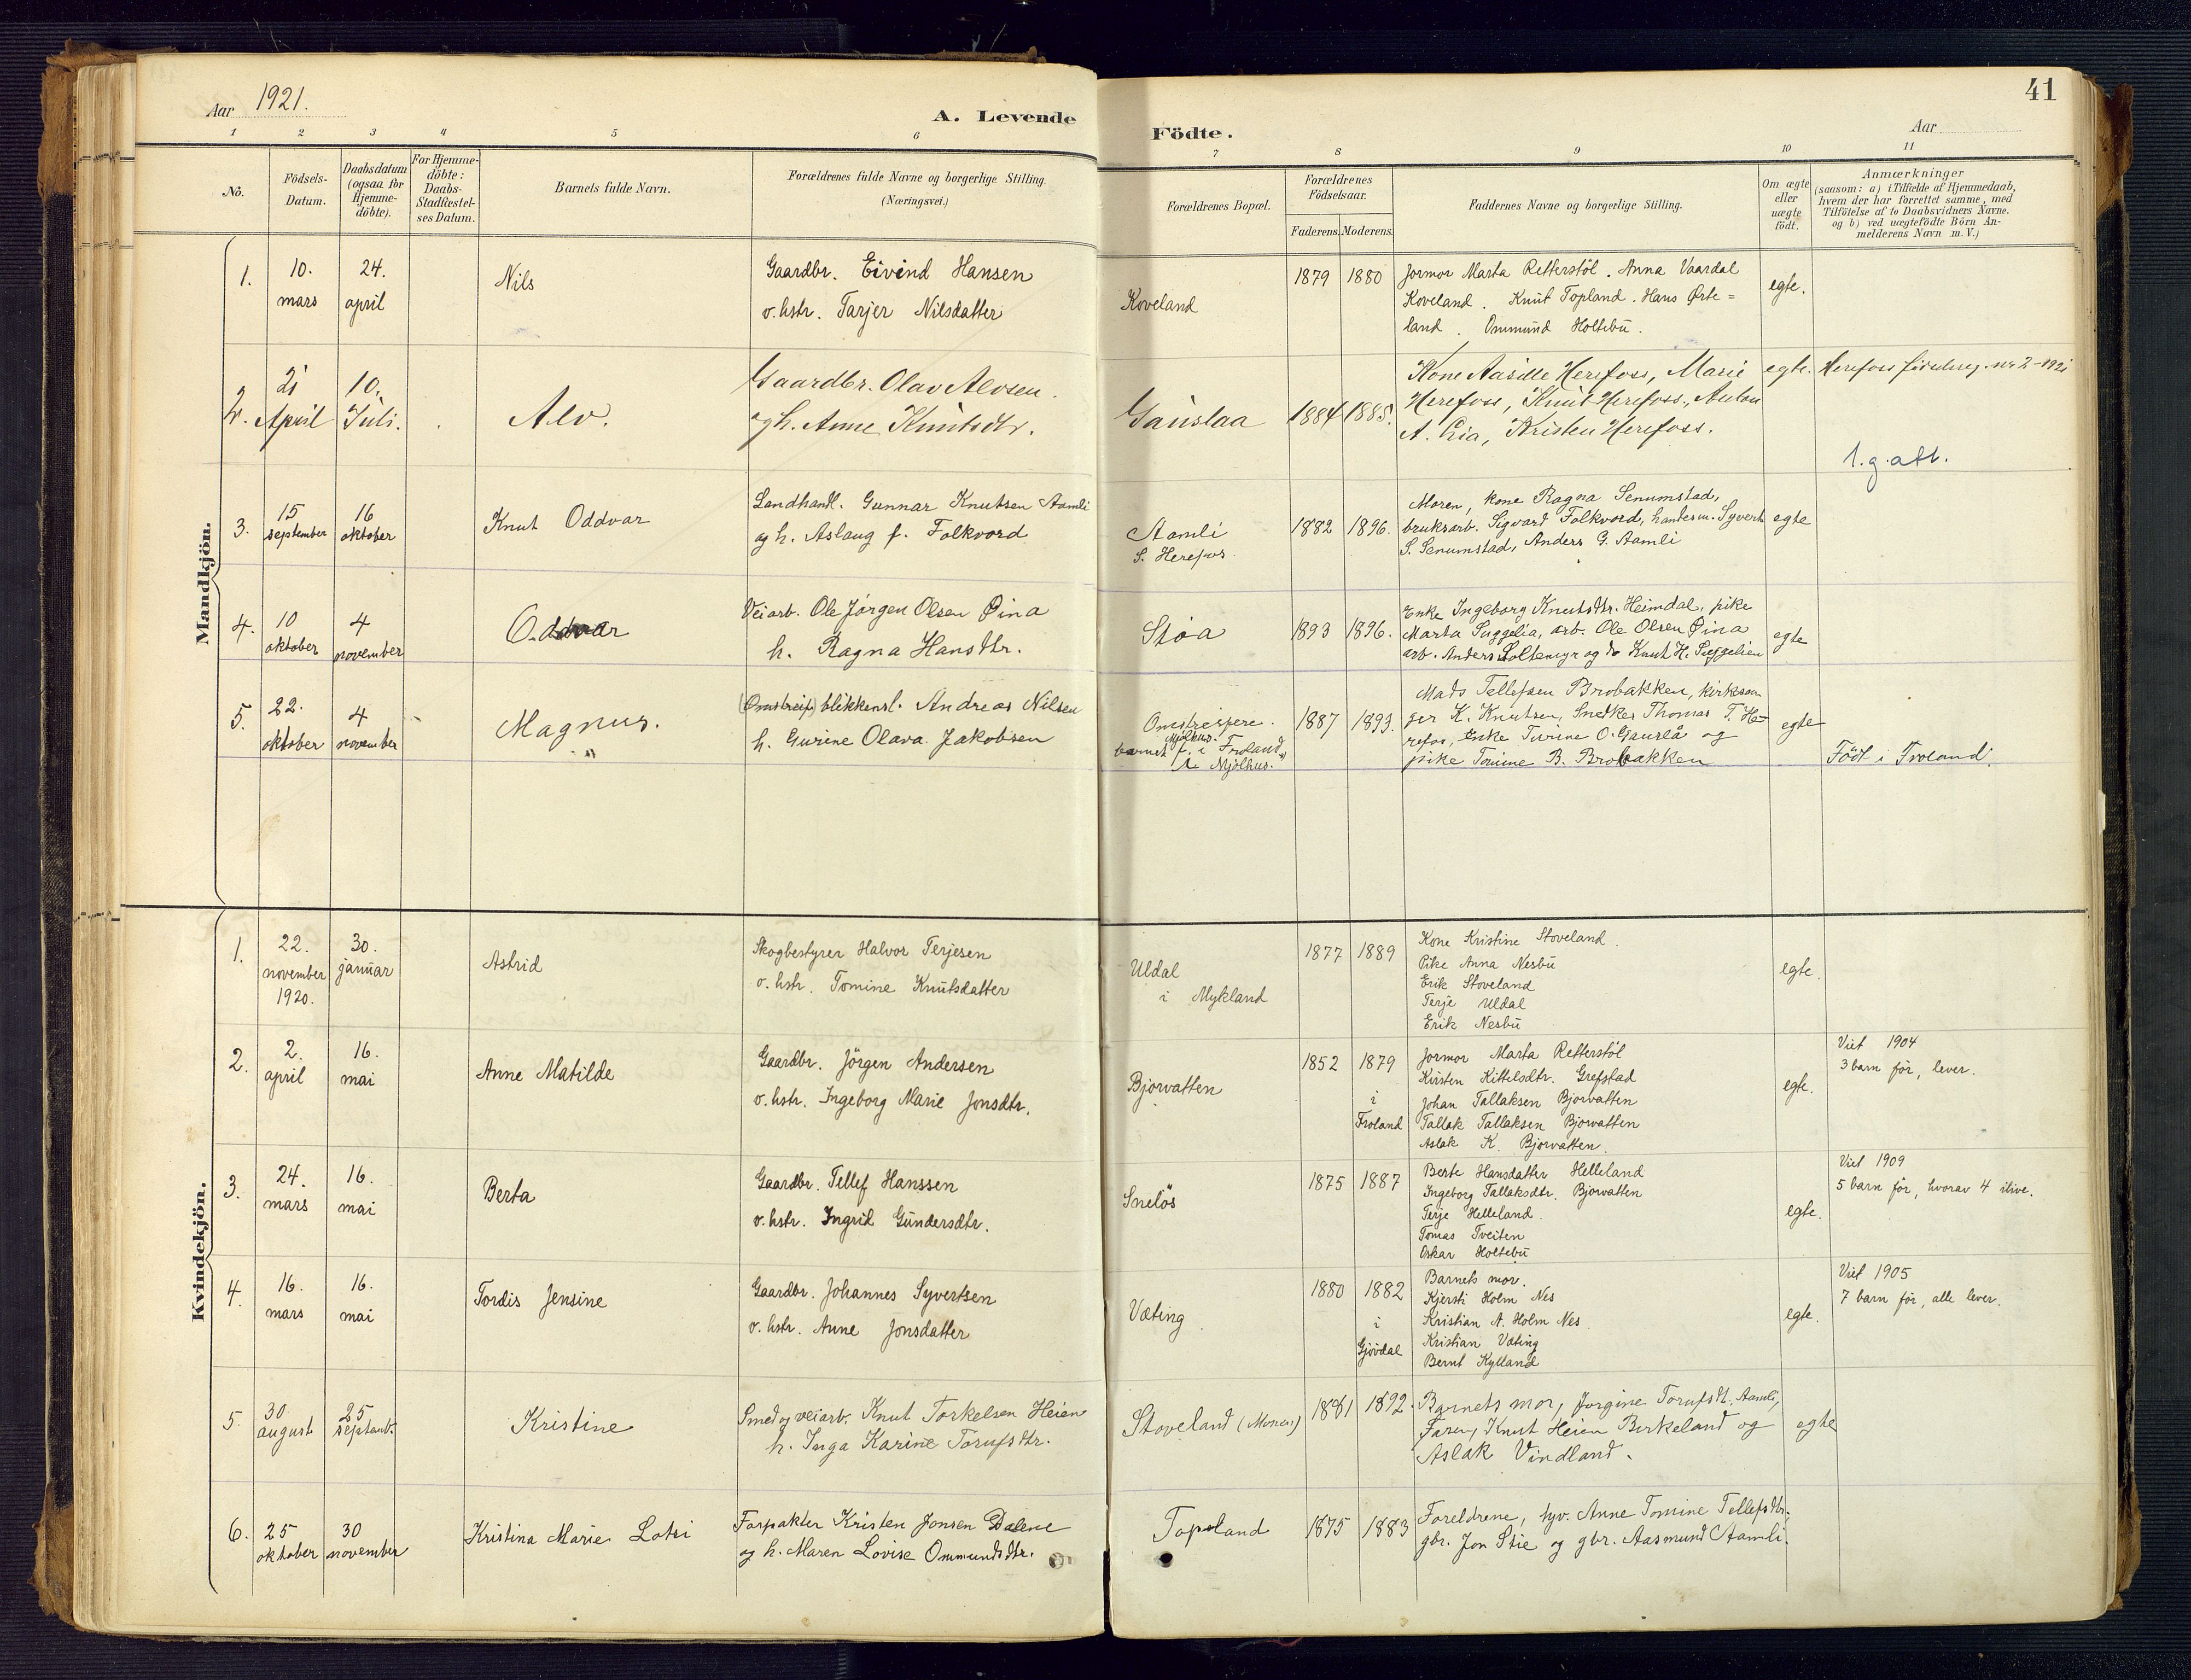 Aar 1921.
A. Levende
Födte.
Aar
41
1 2 3 4 5 6 7 8 9 10 11
No.
Födsels-
Datum.
Daabsdatum
(ogsaa for
Hjemme-
döbte).
For Hjemme-
döbte:
Daabs-
Stadfæstel-
ses Datum.
Barnets fulde Navn.
Forældrenes fulde Navne og borgerlige Stilling.
(Næringsvei.)
Forældrenes Bopæl.
Forældrenes
Födselsaar.
Faderens. Moderens.
Faddernes Navne og borgerlige Stilling.
Om ægte
eller
uægte
födt.
Anmærkninger
(saasom: a) i Tilfælde af Hjemmedaab,
hvem der har forrettet samme, med
Tilföielse af to Daabsvidners Navne.
og b) ved uægtefödte Börn An-
melderens Navn m. V.)
Mandkjön.
1.
10.
mars
24.
april
Nils
Gaardbr. Eivind Hansen
o. hstr. Tarjer Nilsdatter
Koveland
1879 1880
Jormor Marta Retterstöl. Anna Vaardal
Koveland. Knut Topland. Hans Örte=
land. Ommund Holtebu.
egte.
2.
21
April
10.
Juli.
Alv.
Gaardbr. Olav Alvsen.
og h. Anne Knutsdtr.
Gauslaa
1884 1885.
Kone Aasille Herefoss, Marie
Herefoss, Knut Herefoss, Anton
A. Lia, Kristen Herefoss.
egte.
Herefoss födselreg. nr 2-1921
1. g. att.
3.
15
september
16
oktober
Knut Oddvar
Landhandl. Gunnar Knutsen Aamli
og h. Aslaug f. Folkvord
Aamli
S. Herefos.
1882 1896.
Moren, kone Ragna Senumstad,
bruksarb. Sigvard Folkvord, handesm. Syvert
S. Senumstad, Anders G. Aamli
egte
4.
10
oktober
4
november
Oddvar
Veiarb. Ole Jörgen Olsen Øina
h. Ragna Hansdtr.
Stöa
1893 1896.
Enke Ingeborg Knutsdtr. Heimdal, pike
Marta Suggelia, arb. Ole Olsen Øina
arb. Anders Soltemyr og do Knut H. Suggelien
egte
5.
22.
oktober
4
november
Magnus.
(Omstreif) blikkensl. Andreas Nilsen
h. Gurine Olava Jakobsen
Omstreifere.
Mjölhus.
barnet f. i Froland,
Mjölhus.
1887 1893.
Mads Tellefsen Brobakken, kirkesan
ger K. Knutsen, Snekker Thomas T. He=
refos, Enke Turine O. Gauslå og
pike Tomine B. Brobakken
egte
Födt i Froland.
Kvindekjön.
1.
22.
november
1920.
30.
januar
Astrid
Skogbestyrer Halvor Terjesen
o. hstr. Tomine Knutsdatter
Uldal
i Mykland
1877 1889
Kone Kristine Stoveland.
Pike Anna Nesbu
Erik Stoveland
Terje Uldal
Erik Nesbu
egte.
2.
2.
april
16.
mai
Anne Matilde
Gaardbr. Jörgen Andersen
o. hstr. Ingeborg Marie Jonsdtr.
Bjorvatten
i
Froland
1852 1879
Jormor Marta Retterstöl
Kirsten Kittelsdtr. Grefstad
Johan Tallaksen Bjorvatten
Tallak Tallaksen Bjorvatten
Aslak K. Bjorvatten.
egte.
Viet 1904
3 barn för, lever.
3.
24.
mars
16.
mai
Berta
Gaardbr. Tellef Hanssen
o. hstr. Ingrid Gundersdtr.
Snelös
1875 1887
Berte Hansdatter Helleland
Ingeborg Tallaksdtr. Bjorvatten
Terje Helleland.
Tomas Tveiten
Oskar Holtebu
egte.
Viet 1909
5 barn för, hvorav 4 ilive.
4.
16.
mars
16.
mai
Tordis Jensine
Gaardbr. Johannes Syvertsen
o. hstr. Anne Jonsdatter
Væting
i
Gjövdal
1880 1882
Barnets mor.
Kjersti Holm Nes
Kristian A. Holm Nes
Kristian Væting
Bernt Kylland
egte.
Viet 1905
7 barn för, alle lever.
5.
30
august
25
septemb.
Kristine
Smed og veiarb. Knut Torkelsen Heien
h. Inga Karine Torufsdtr.
Stoveland (Monen)
1881 1892.
Barnets mor, Jorgine Torufsdt. Aamli,
Faren, Knut Heien Birkeland og
Aslak Vindland.
egte
6.
25
oktober
30
november
Kristina Marie Lotsi
Forpakter Kristen Jonsen Dalene
og h. Maren Lovise Ommundsdtr.
Topland
1875 1883
Foreldrene, tyv. Anne Tomine Tellefsdtr.
gbr. Jon Stie og gbr. Aasmund Aamli.